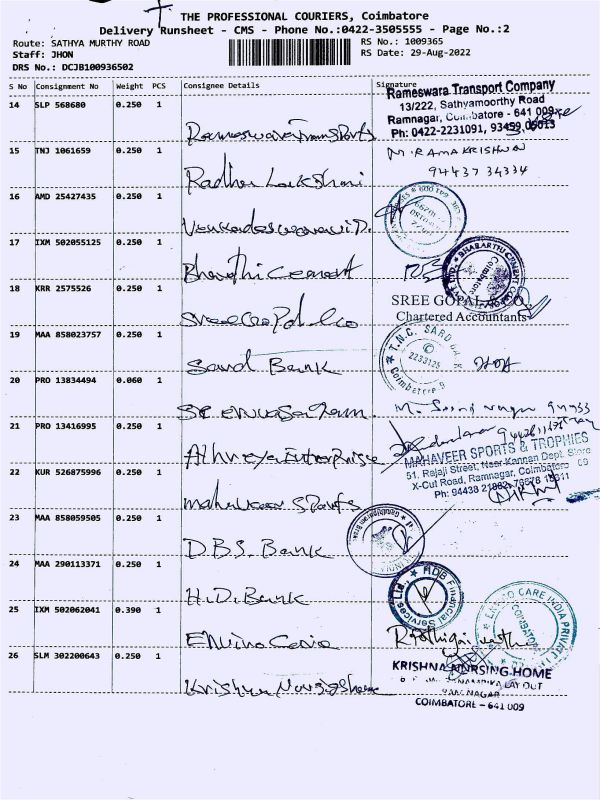 THE PROFESSIONAL COURIERS, Coimbatore
Delivery Runsheet - CMS - Phone No.:0422-3505555 - Page No.:2
Route: SATHYA MURTHY ROAD
Staff: JHON
DRS No.: DCJB100936502
RS No.: 1009365
RS Date: 29-Aug-2022
S No Consignment No Weight PCS Consignee Details Signature
14 SLP 568680 0.250 1
Rameswara Transports
Rameswara Transport Company
13/222, Sathyamoorthy Road
Ramnagar, Coimbatore - 641 009
Ph: 0422-2231091, 93459 06013
15 TNJ 1061659 0.250 1
Radha Lakshmi
M. RAMAKRISHNAN
94437 34334
16 AMD 25427435 0.250 1
17 IXM 502055125 0.250 1
Bharathi Cement
BHARATHI CEMENT
Coimbatore
18 KRR 2575526 0.250 1
Sree Gopal & Co
SREE GOPAL & CO.,
Chartered Accountants
19 MAA 858023757 0.250 1
Sarvd Bank
T.N.C. SARD
2233125
Coimbatore 9
20 PRO 13834494 0.060 1
21 PRO 13416995 0.250 1
Athreya Enterprise
22 KUR 526875996 0.250 1
mahaveer Sports
MAHAVEER SPORTS & TROPHIES
51, Rajaji Street, Near Kannan Dept. Store
X-Cut Road, Ramnagar, Coimbatore 09
Ph: 94438
23 MAA 858059505 0.250 1
D.B.S. Bank
24 MAA 290113371 0.250 1
H.D. Bank
HDB Financial Services Ltd.,
25 IXM 502062041 0.390 1
Enviro Care
CARE INDIA PRIVATE
COIMBATORE
26 SLM 302200643 0.250 1
Krishna Nursing Home
KRISHNA NURSING HOME
LAY OUT
RAM NAGAR
COIMBATORE - 641 009